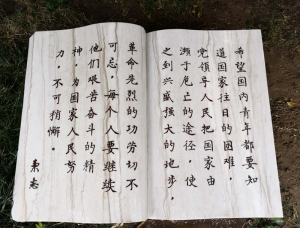 希望国内青年都要知
道国家往日的困难，
党领导人民把国家由
濒于危亡的途径，使
之到兴盛强大的地步，
革命先烈的功劳切不
可忘，每个人要继续
他们艰苦奋斗的精
神，为国家人民努
力，不可稍懈。